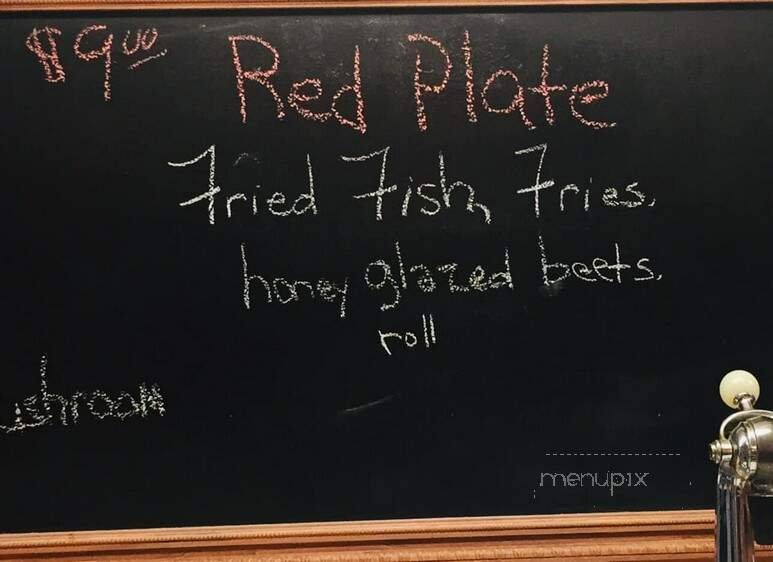 $9.00 Red Plate
Fried Fish, Fries,
honey glazed beets,
roll
ushroom
menupix